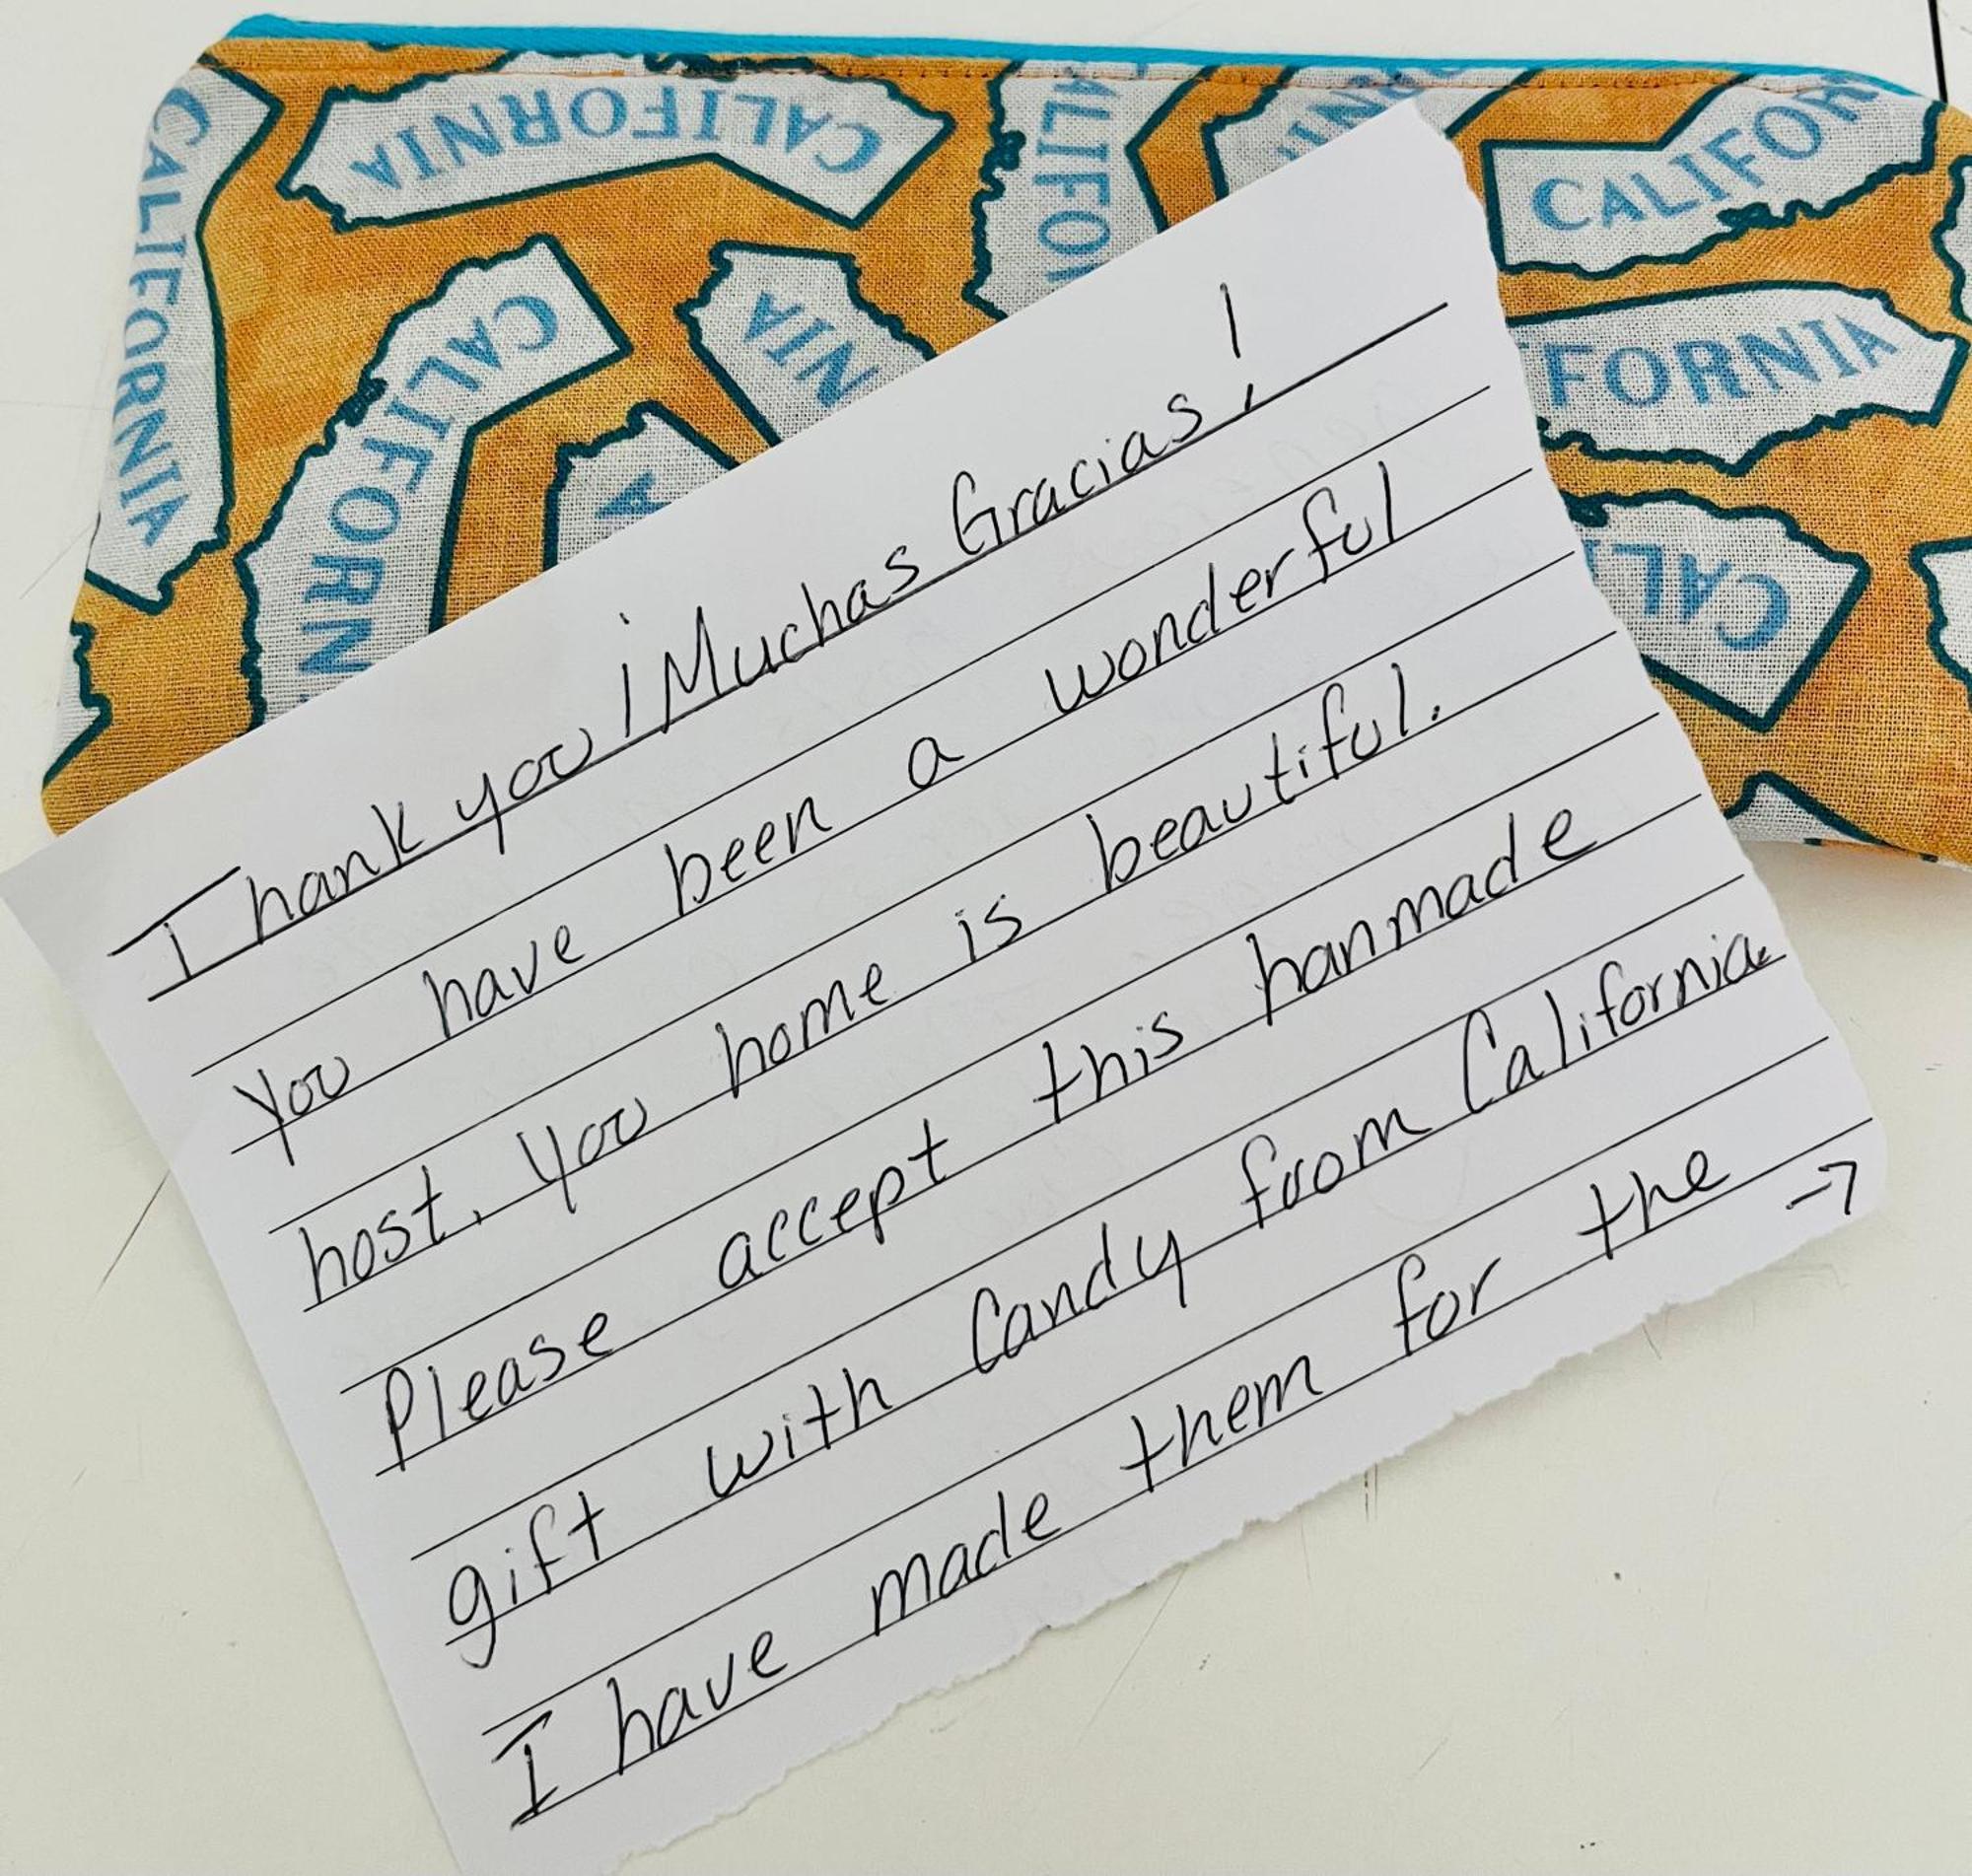 CALIFORNIA
CALIFORNIA
CALIFOR
INR
CALIFOR
CALIFORN
NIA
A
FORNIA
CALI
Thank you ¡Muchas Gracias!
You have been a wonderful
host. You home is beautiful.
Please accept this hanmade
gift with Candy from California.
I have made them for the →